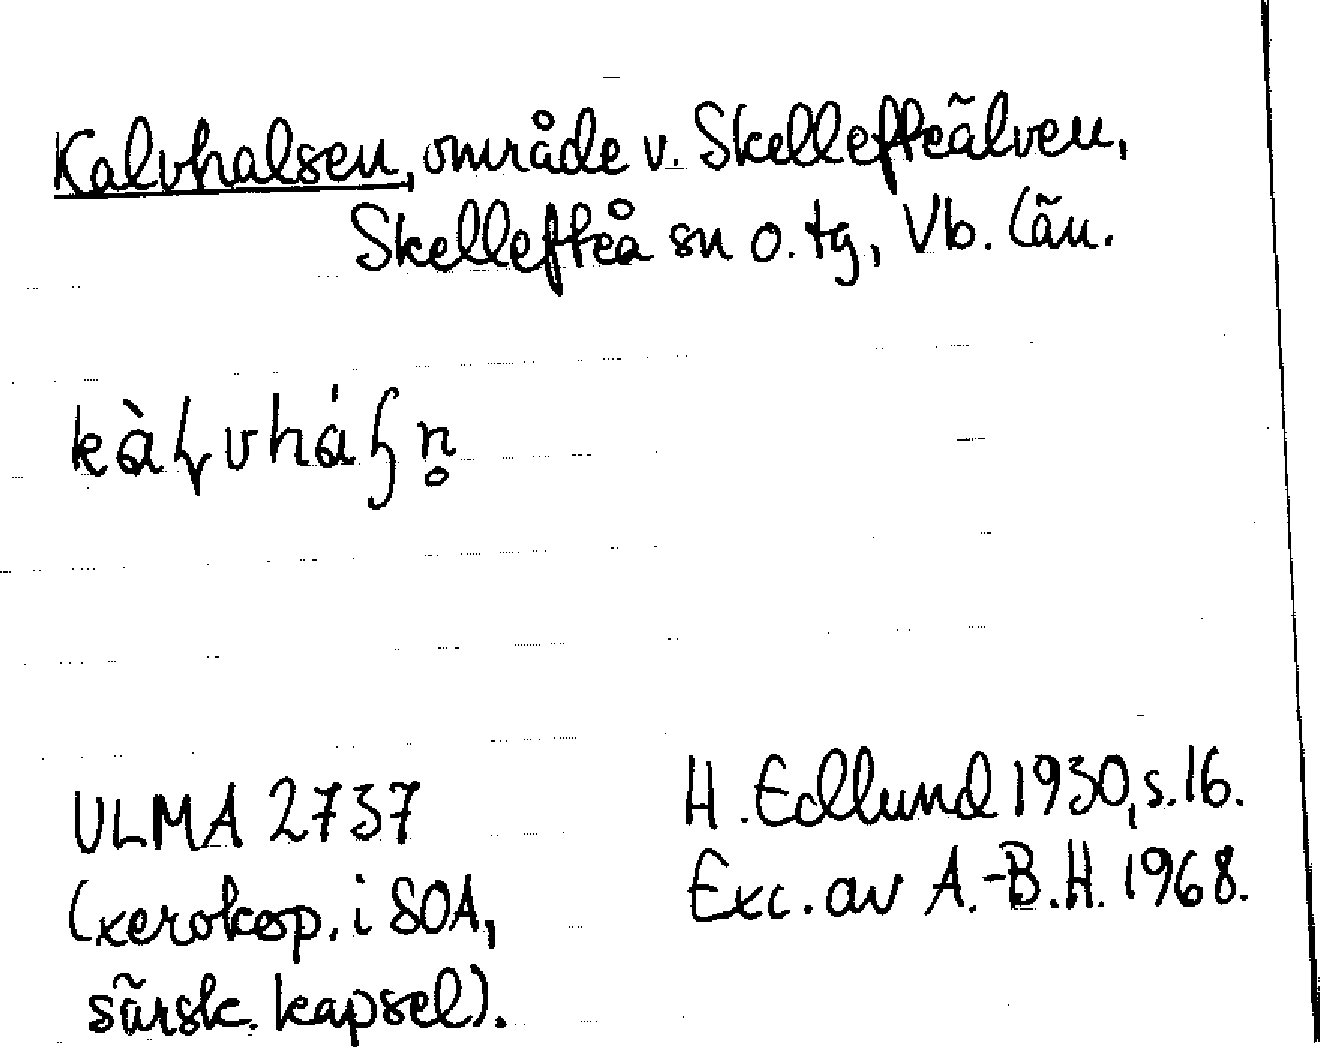 Kalvhalsen, område v. Skellefteälven,
Skellefteå sn o. tg, Vb. län.
ULMA 2737
(xerokop. i SOA,
särsk. kapsel).
H. Edlund 1930, s. 16.
Exc. av A.-B. H. 1968.